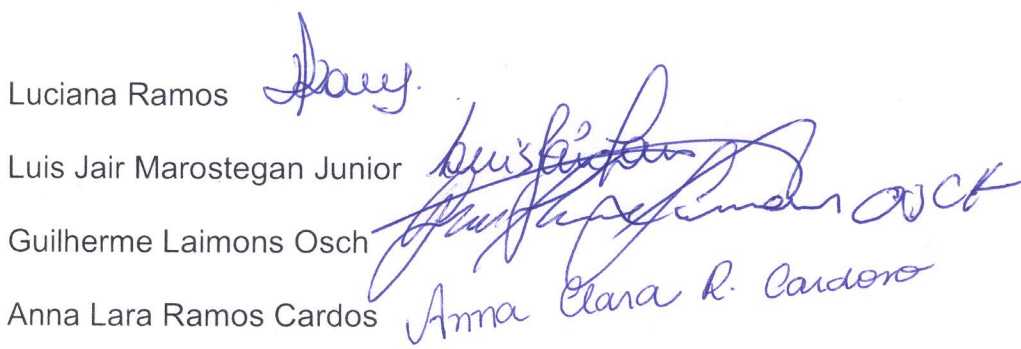 Luciana Ramos
Luis Jair Marostegan Junior Luis Jair
Guilherme Laimons Osch
Anna Lara Ramos Cardos Anna Clara R. Cardoso